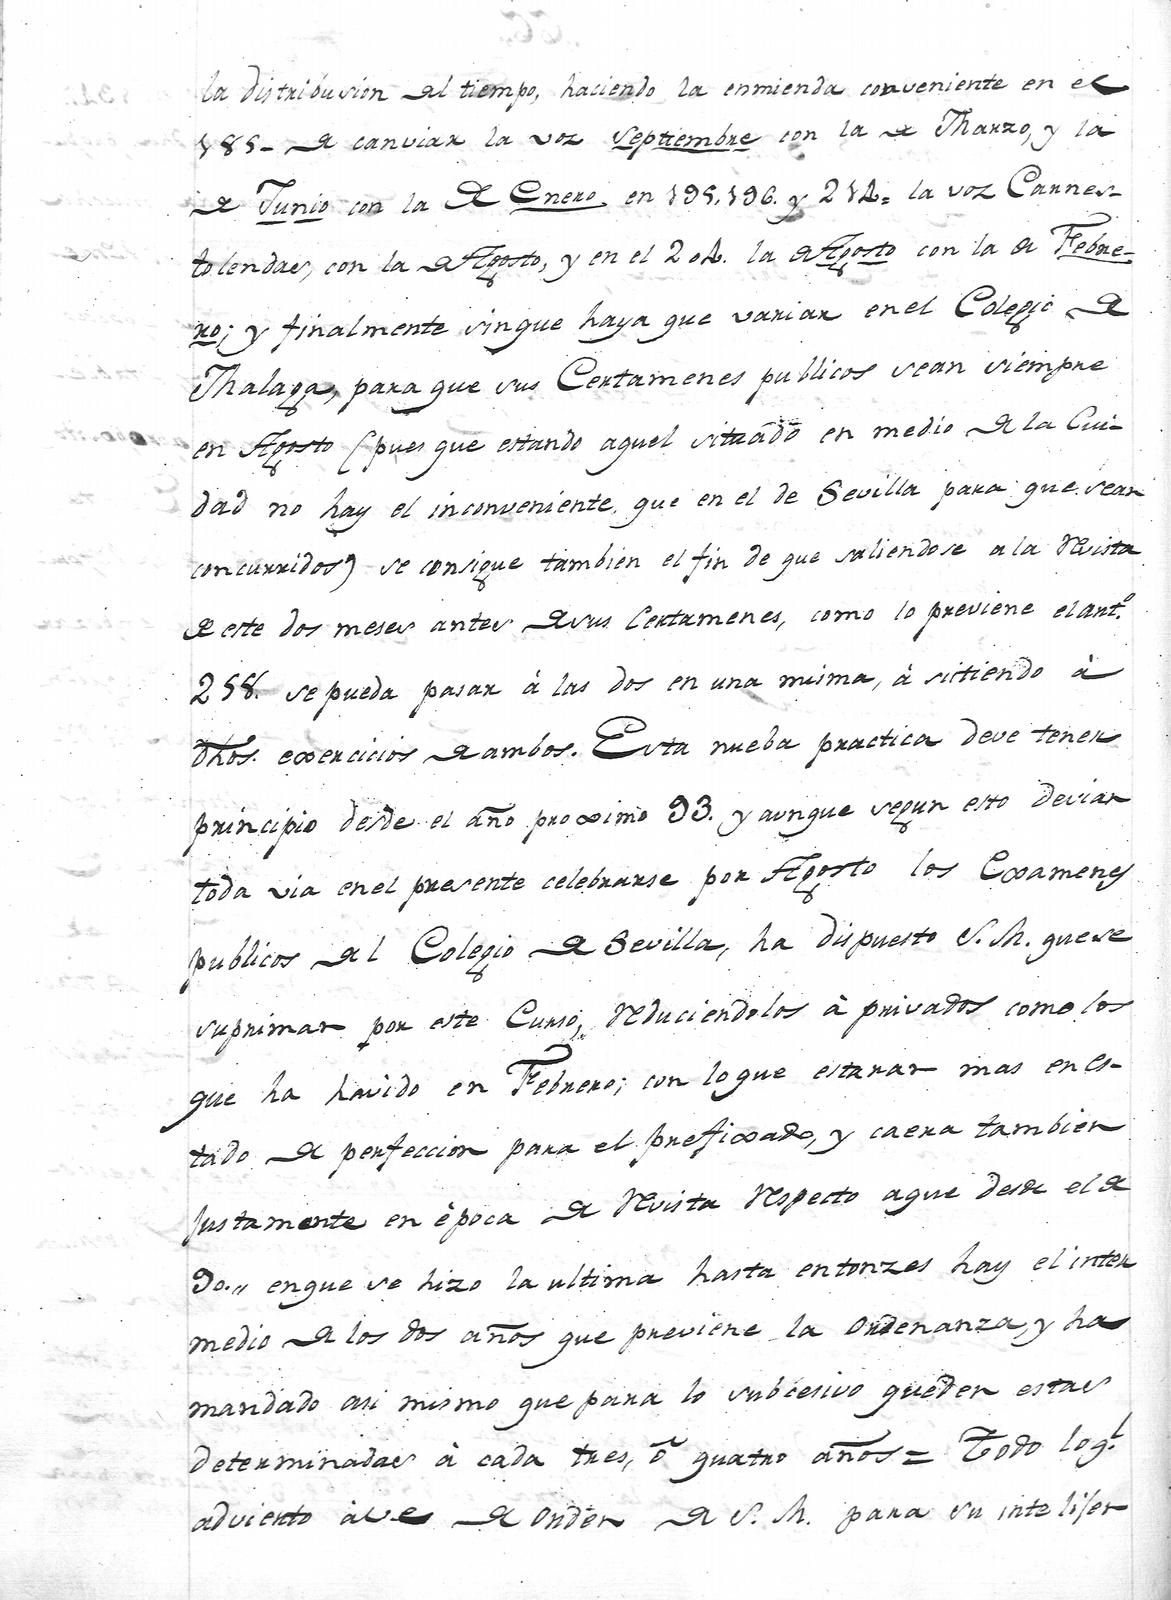 la distribusion del tiempo, haciendo la enmienda conveniente en el
185- de canviar la voz Septiembre con la de Marzo, y la
de Junio con la de Enero, en 195.196. y 212= la voz Carnes-
tolendas, con la de Agosto, y en el 202. la de Agosto con la de Febre-
ro; y finalmente sin que haya que variar en el Colegio de
Malaga, para que sus Certamenes publicos sean siempre
en Agosto (pues que estando aquel situado en medio de la Ciu-
dad no hay el inconveniente, que en el de Sevilla para que sean
concurridos) se consigue tambien el fin de que saliendose a la Revista
de este dos meses antes de sus Certamenes, como lo previene el art.º
258. se pueda pasar à las dos en una misma, à sistiendo à
dhos. exercicios de ambos. Esta nueba practica deve tener
principio desde el año proximo 93. y aunque segun esto devian
toda via en el presente celebrarse por Agosto los Examenes
publicos del Colegio de Sevilla, ha dispuesto S. M. que se
supriman por este Curso, reduciendolos à privados como los
que ha havido en Febrero; con lo que estaran mas en es-
tado de perfeccion para el prefixado, y caera tambien
justamente en època de Revista respecto aque desde el de
90.,, en que se hizo la ultima hasta entonzes hay el inter
medio de los dos años que previene la ordenanza, y ha
mandado asi mismo que para lo subcesivo queden estas
determinadas à cada tres, ô quatro años = Todo lo q.l
advierto à Ve de orden de S. M. para su intelijen